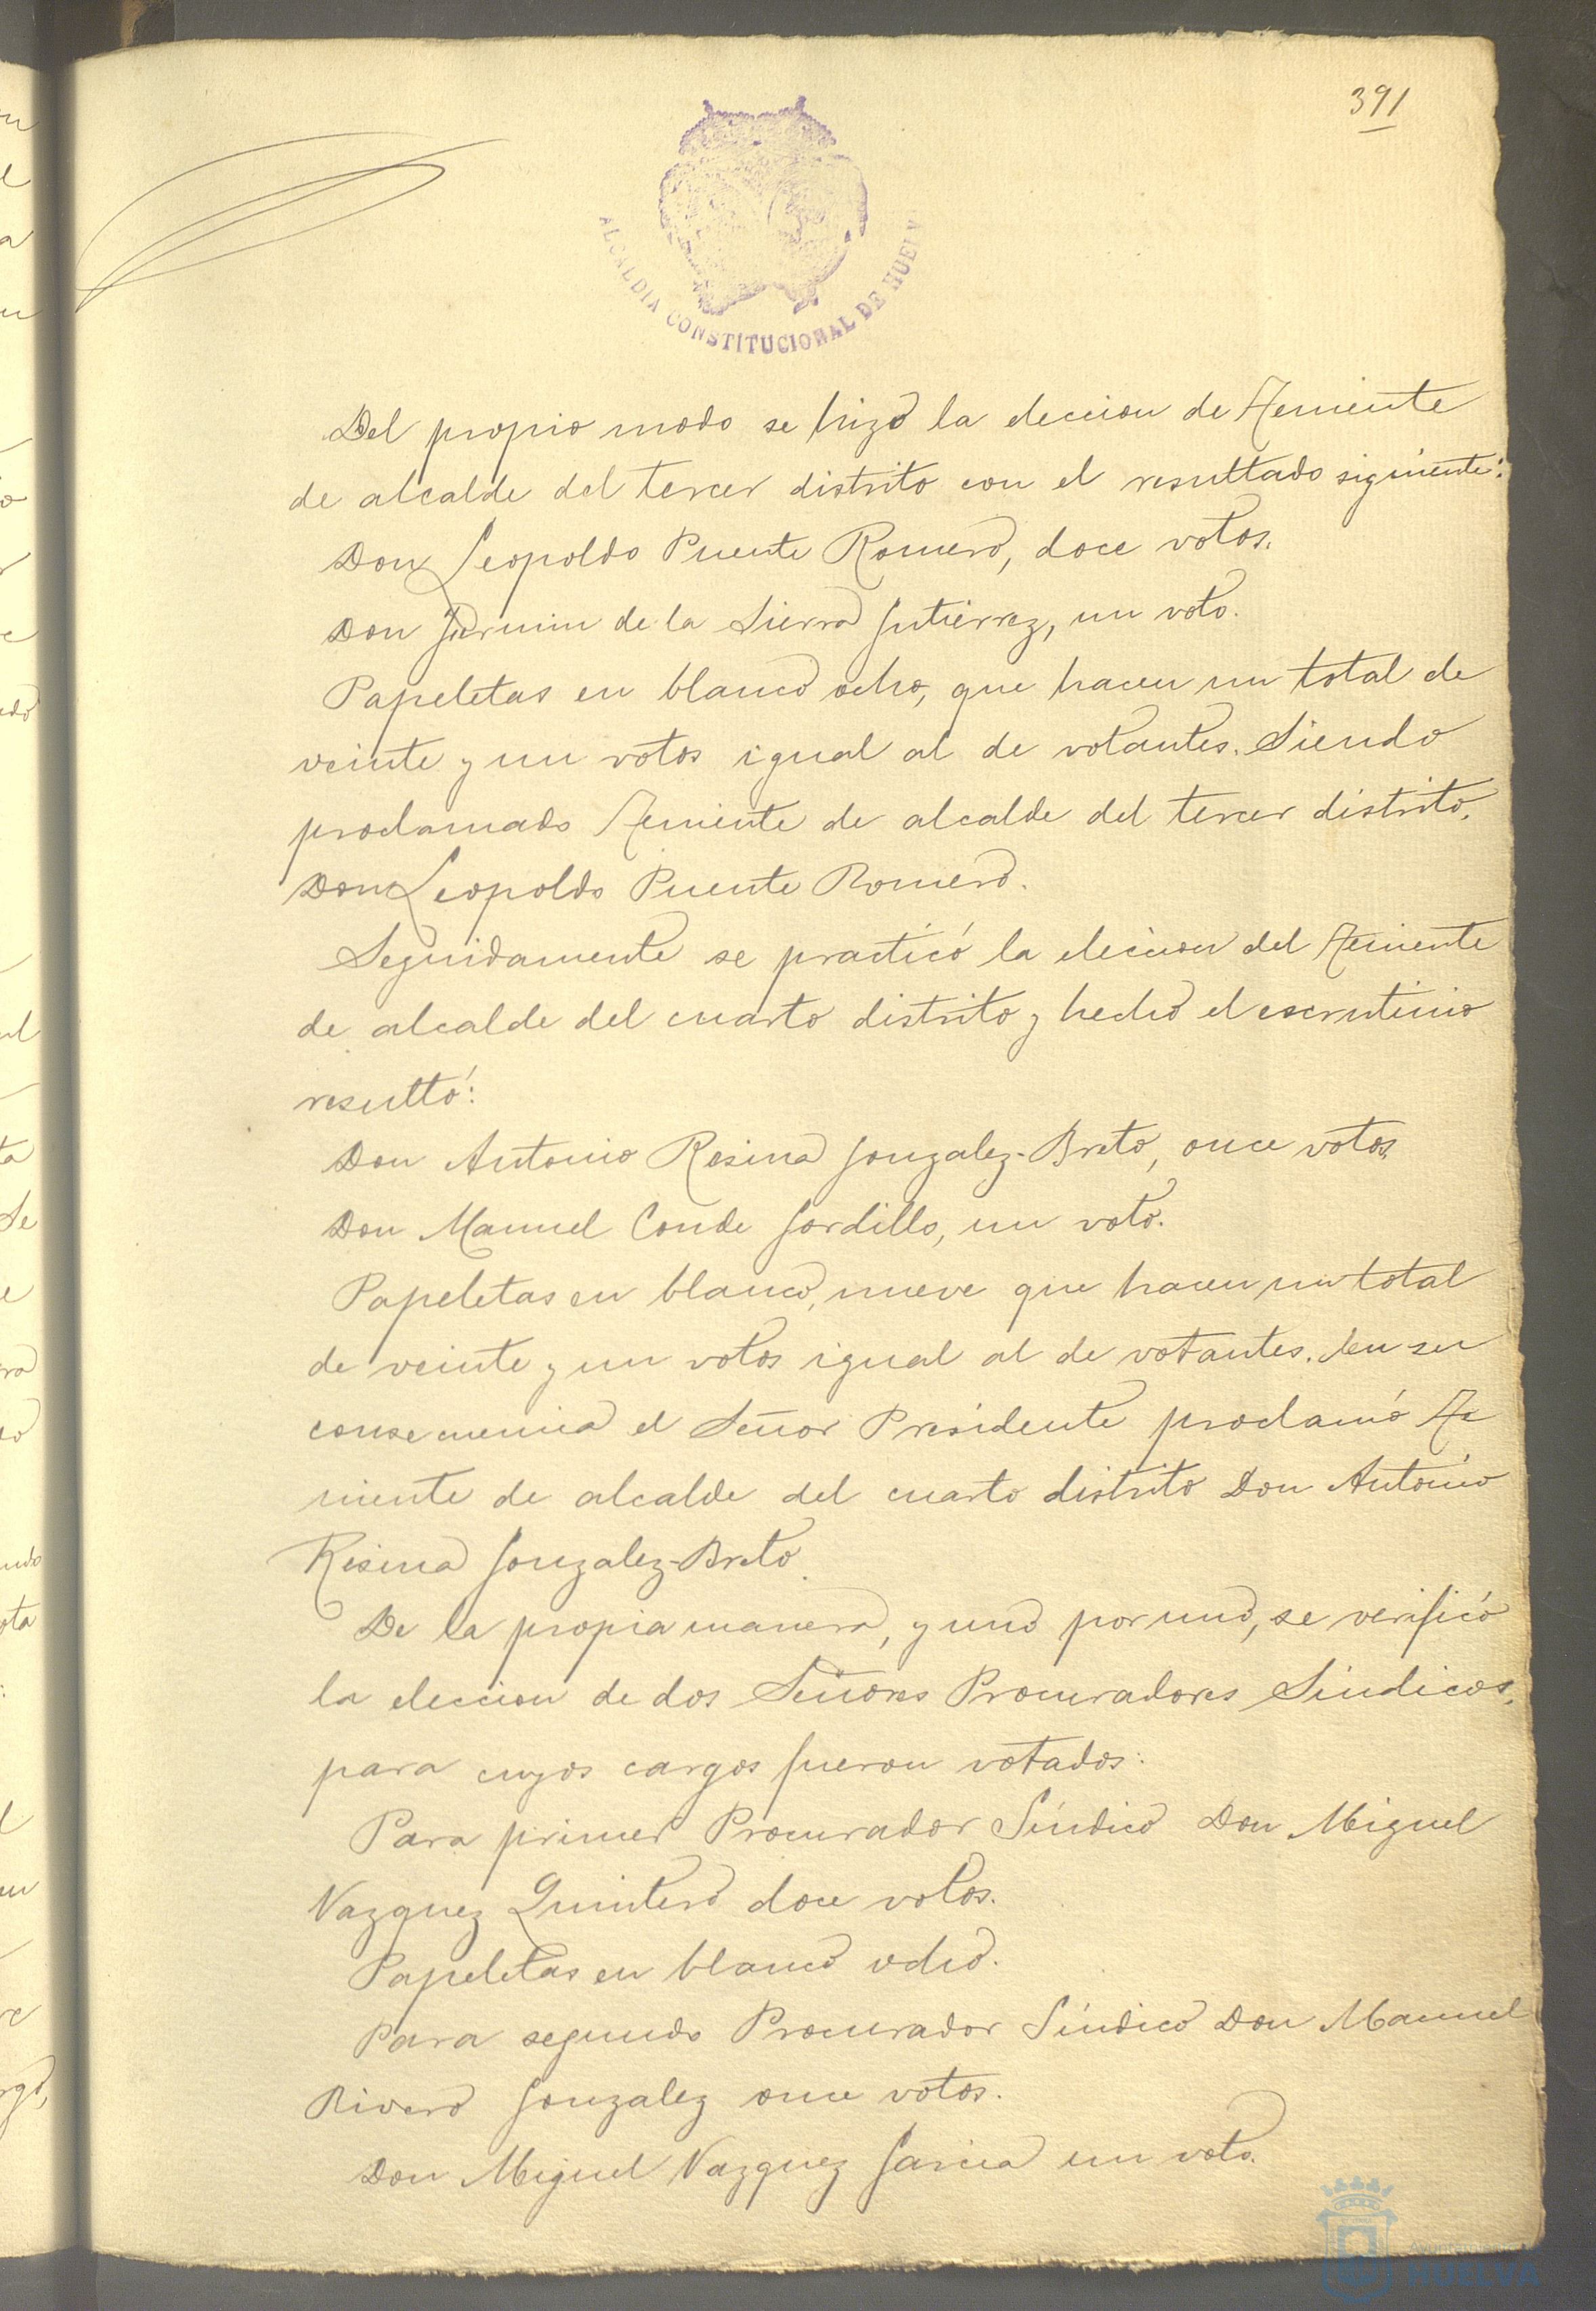 391
ALCALDIA CONSTITUCIONAL DE HUELV
Del propio modo se hizo la eleccion de Teniente
de alcalde del tercer distrito con el resultado siguiente:
Don Leopoldo Puente Romero, doce votos.
Don Fermin de la Sierra Gutiérrez, un voto.
Papeletas en blanco ocho, que hacen un total de
veinte y un votos igual al de votantes. Siendo
proclamado Teniente de alcalde del tercer distrito,
Don Leopoldo Puente Romero.
Seguidamente se practicó la eleccion del Teniente
de alcalde del cuarto distrito y hecho el escrutinio
resultó:
Don Antonio Resina Gonzalez-Breto, once votos.
Don Manuel Conde Gordillo, un voto.
Papeletas en blanco, nueve que hacen un total
de veinte y un votos igual al de votantes. En su
consecuencia el Señor Presidente proclamó Te
niente de alcalde del cuarto distrito Don Antonio
Resina Gonzalez-Breto.
De la propia manera, y uno por uno, se verificó
la eleccion de dos Señores Procuradores Sindicos,
para cuyos cargos fueron votados:
Para primer Procurador Síndico Don Miguel
Vazquez Quintero doce votos.
Papeletas en blanco ocho.
Para segundo Procurador Síndico Don Manuel
Rivero Gonzalez once votos.
Don Miguel Vazquez Garcia un voto.
HUELVA